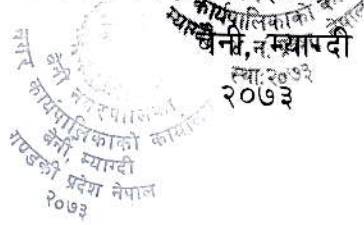 कार्यपालिकाको
बेनी, म्याग्दी
स्था: २०७३
२०७३
बेनी नगरपालिका
नगर कार्यपालिकाको कार्यालय
बेनी, म्याग्दी
गण्डकी प्रदेश नेपाल
२०७३